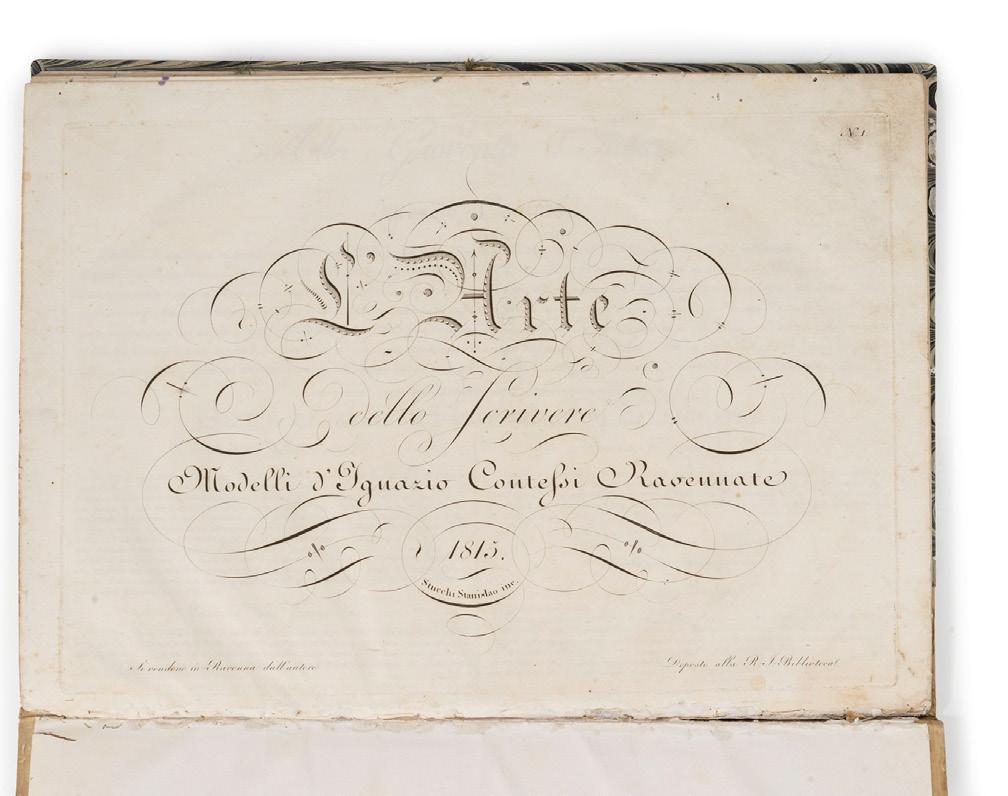 N. 1
L'Arte
dello Scrivere
Modelli d'Ignazio Contessi Ravennate
1815.
Stucchi Stanislao inc.
Si vendono in Ravenna dall'autore
Deposto alla R. I. Biblioteca